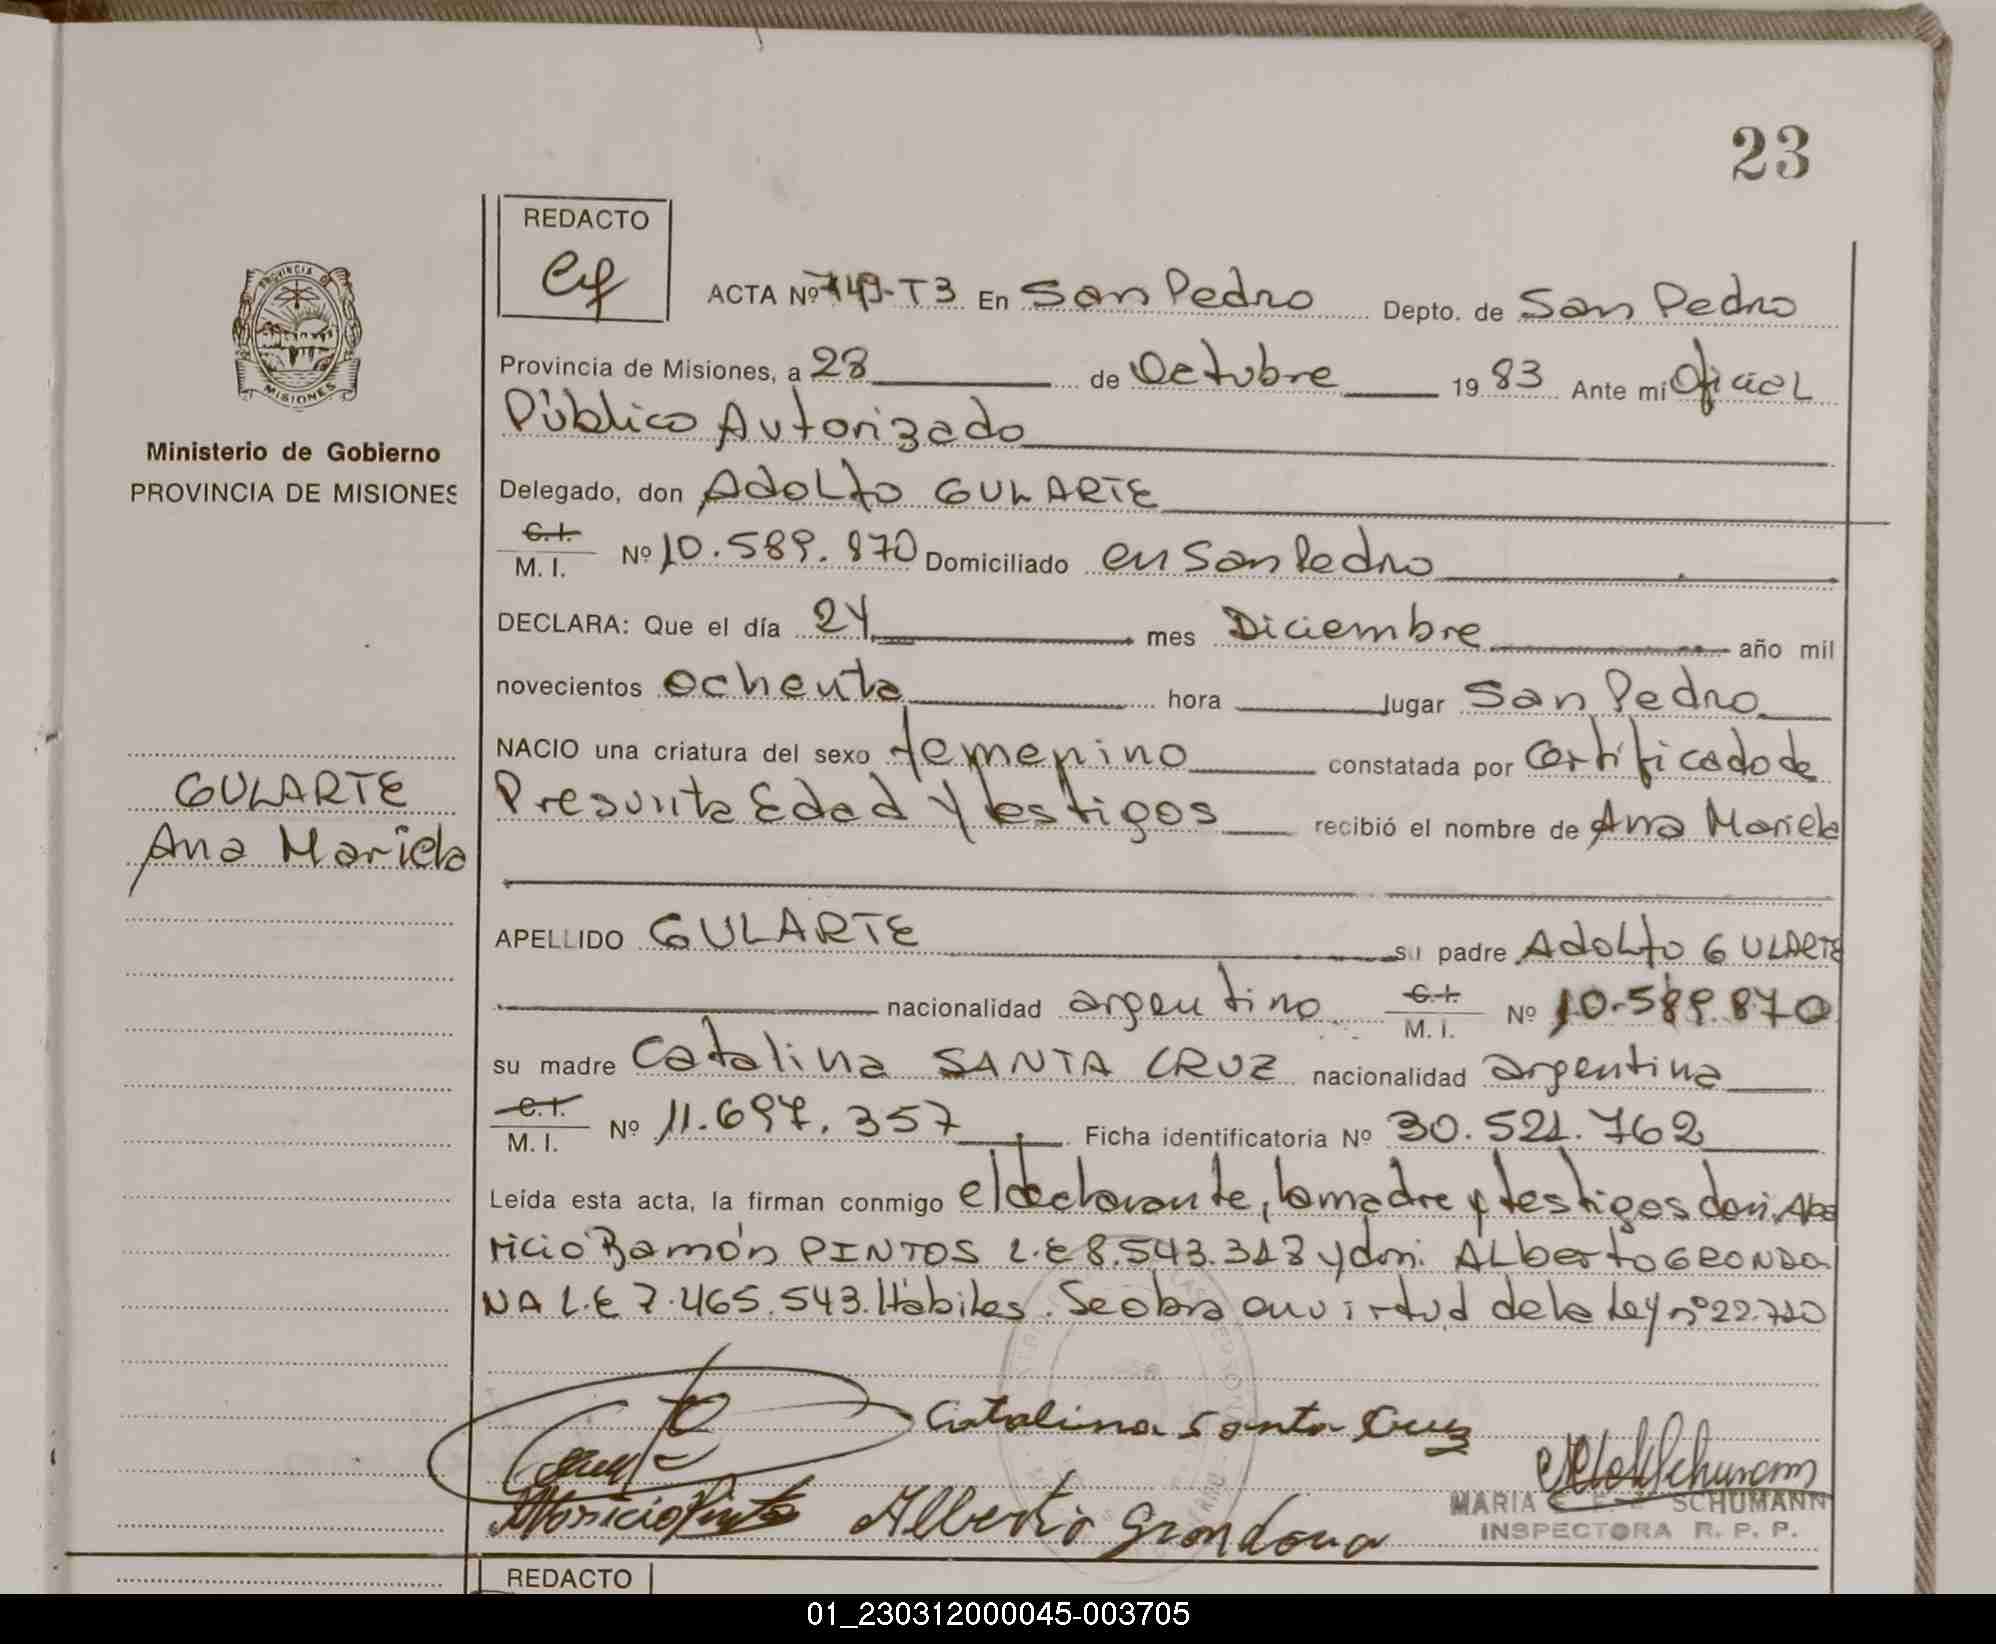 23
REDACTO
ACTA Nº 749-T3 En San Pedro Depto. de San Pedro
Provincia de Misiones, a 28 de Octubre 1983 Ante mi Oficial
Público Autorizado
Delegado, don Adolfo GULARTE
C.I.
M. I. Nº 10.589.870 Domiciliado en San Pedro
DECLARA: Que el día 24 mes Diciembre año mil
novecientos ochenta hora lugar San Pedro
NACIO una criatura del sexo femenino constatada por Certificado de
Presunta Edad y testigos recibió el nombre de Ana Mariela
APELLIDO GULARTE su padre Adolfo GULARTE
nacionalidad argentino C.I. M. I. Nº 10.589.870
su madre Catalina SANTA CRUZ nacionalidad argentina
C.I.
M. I. Nº 11.697.357 Ficha identificatoria Nº 30.521.762
Leída esta acta, la firman conmigo el declarante, la madre y testigos don. Apa
ricio Ramón PINTOS L.E 8.543.313 y don. ALberto GRONDO
NA L.E 7.465.543. Hábiles. Se obra en virtud de la Ley nº 22.710
Catalina Santa Cruz
Alberto Grondona
MARIA SCHUMANN
INSPECTORA R. P. P.
PROVINCIA
MISIONES
Ministerio de Gobierno
PROVINCIA DE MISIONES
GULARTE
Ana Mariela
REDACTO
01_230312000045-003705